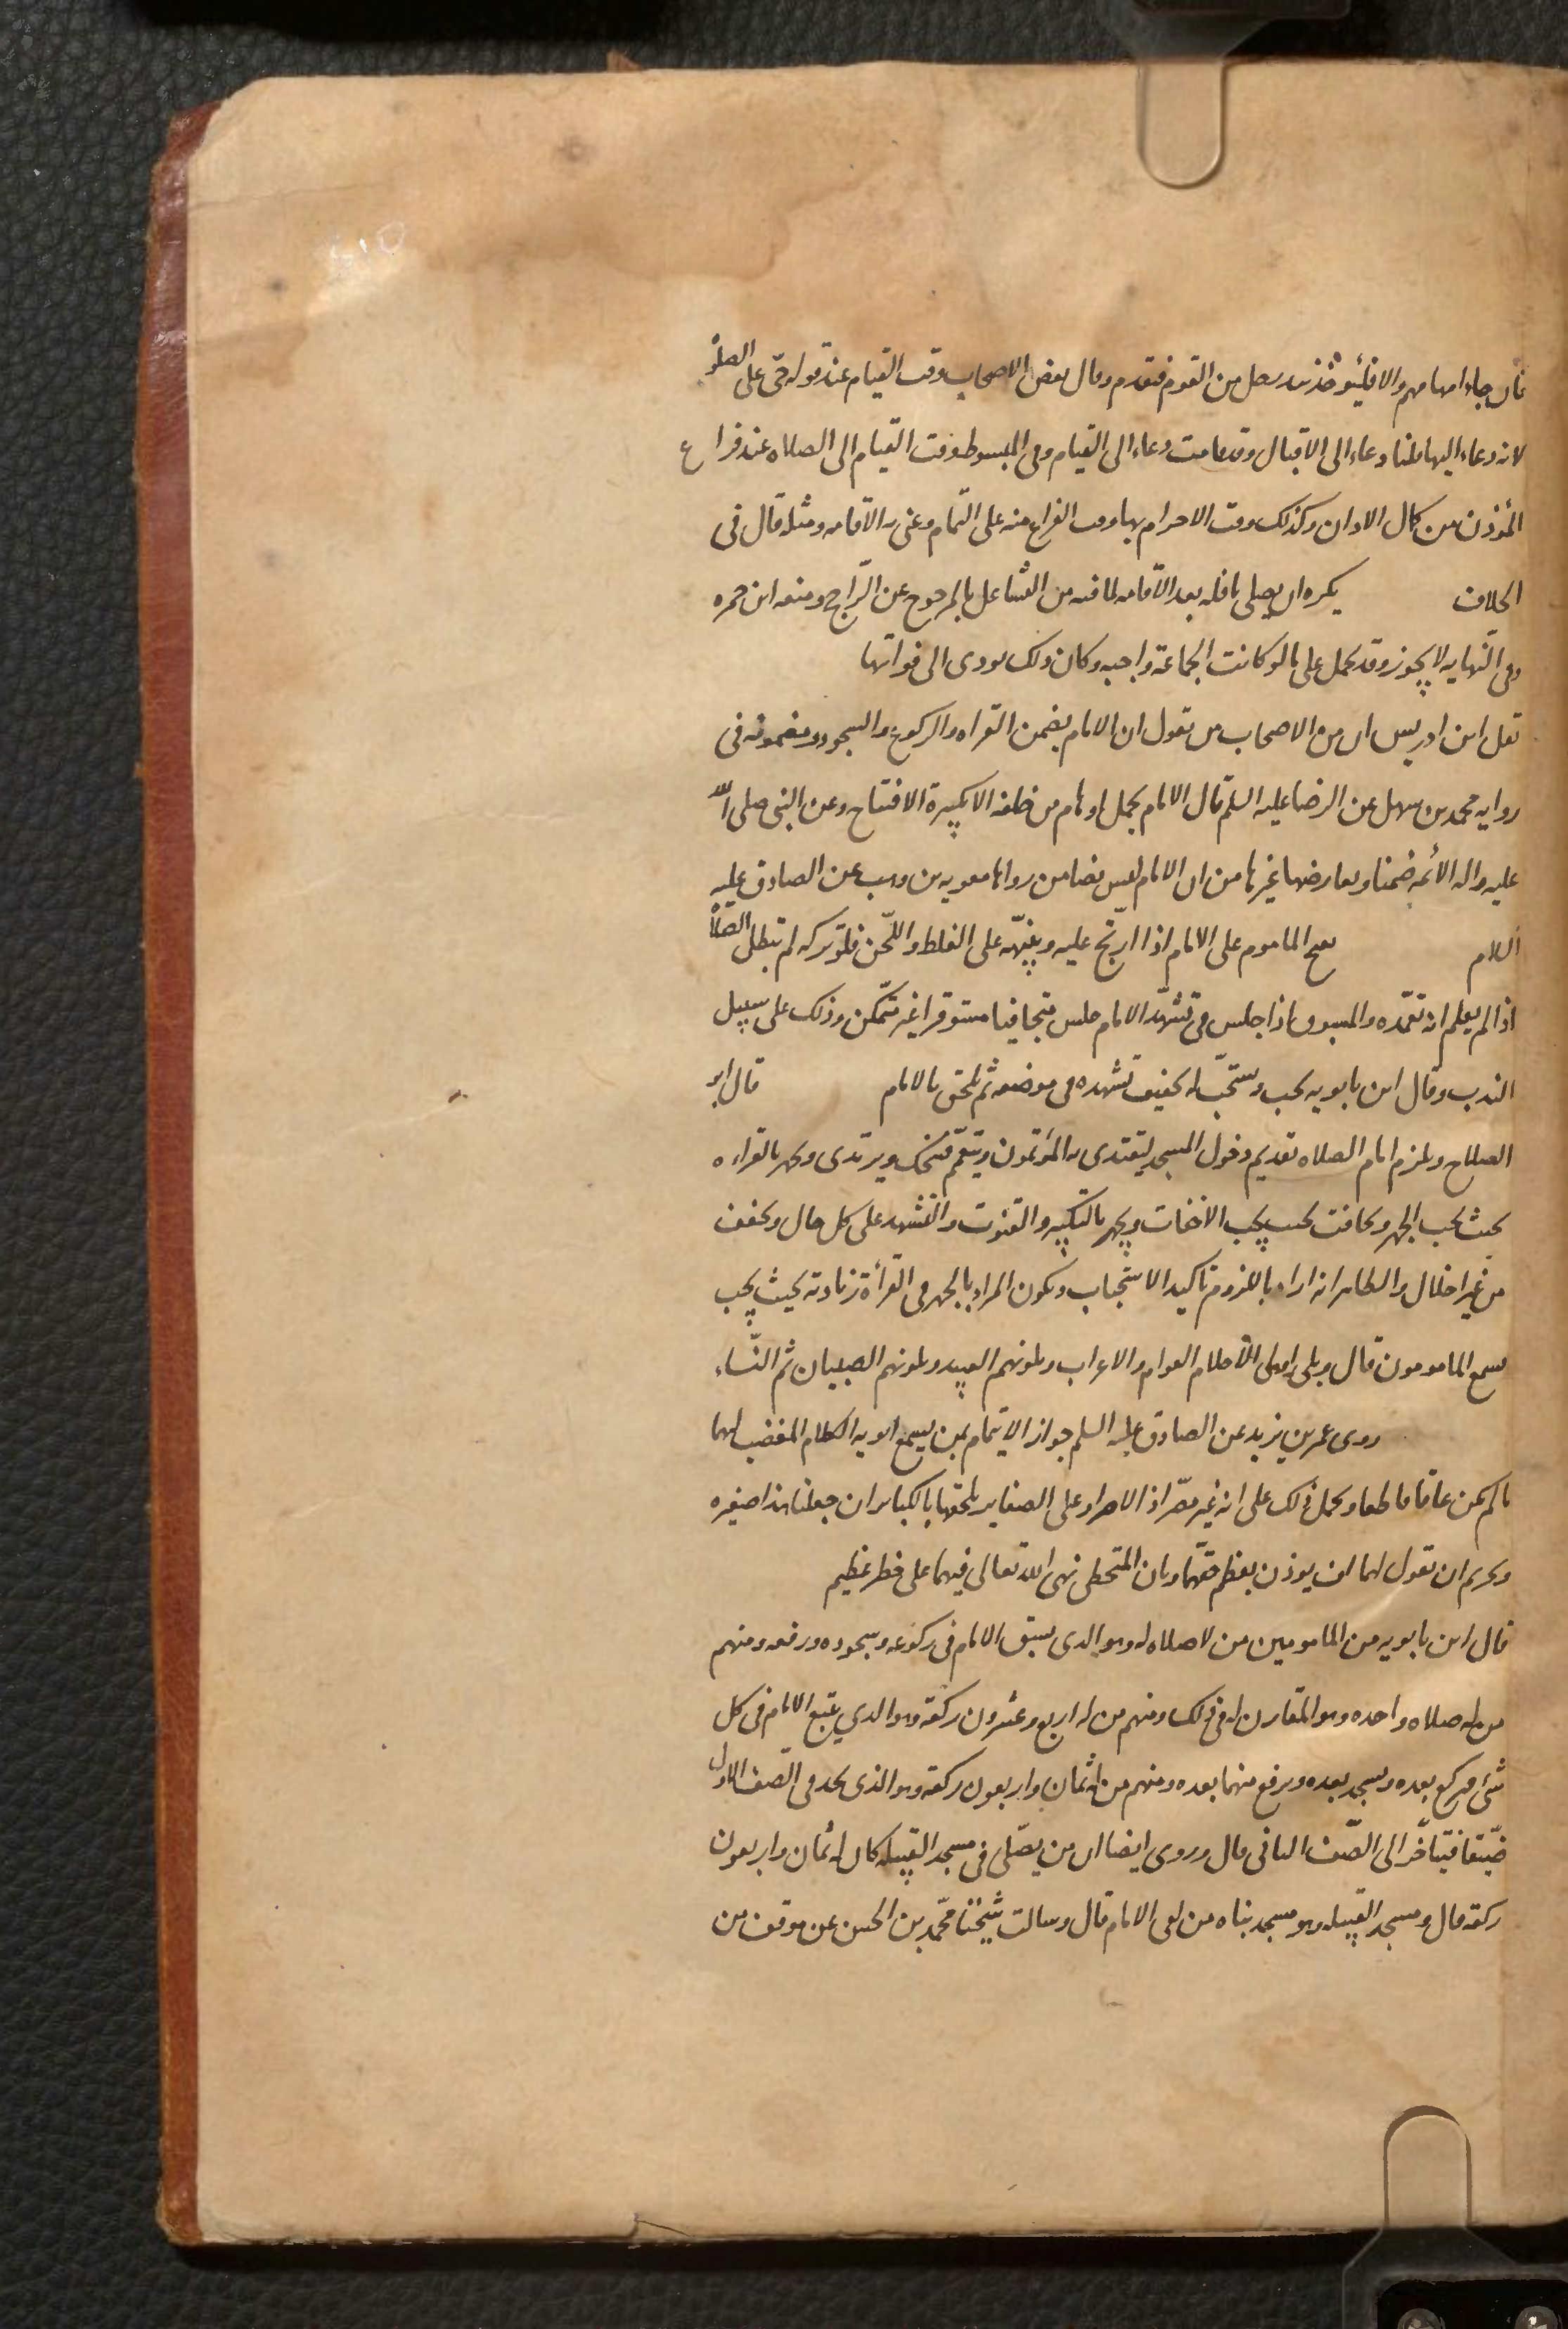 فان جاء امامهم والا فليؤخذ بيد رجل من القوم فيقدم وقال بعض الاصحاب وقت القيام عند قوله حيّ على الصلوة
لانه دعاء اليها قلنا دعاء الى الاقبال وقد قامت دعاء الى القيام وفى المبسوط وقت القيام الى الصلاه عند فراغ
المؤذن من كمال الاذان وكذلك وقت الاحرام بها وقت الفراغ منه على التّمام وعنى به الاقامه ومثله قال فى
الخلاف يكره ان يصلى نافله بعد الاقامه لما فيه من التشاغل بالمرجوح عن الرّاجح ومنعه ابن حمزه
وفى النّهايه لا يجوز وقد يحمل على ما لو كانت الجماعة واجبه وكان ذلك يودى الى فواتها
نقل ابن ادريس ان من الاصحاب من يقول ان الامام يضمن القراه والركوع والسجود ومضمونه فى
روايه محمد بن سهل عن الرضا عليه السلم قال الامام يحمل اوهام من خلفه الا تكبيرة الافتتاح وعن النبى صلى الله
عليه واله الائمه ضمنا ويعارضها غيرها من ان الامام ليس بضامن رواها معويه بن وهب عن الصادق عليه
السلام يفتح الماموم على الامام اذا ارتج عليه وينبّهه على الغلط واللّحن فلو تركه لم تبطل الصّلاة
اذا لم يعلم انه تعمّده والمسبوق اذا جلس فى تشهّد الامام جلس متجافيا مستوفزا غير متمّكن وذلك على سبيل
الندب وقال ابن بابويه يجب ويستحّب له تخفيف تشهده فى موضعه ثم يلحق بالامام قال ابو
الصلاح ويلزم امام الصلاه تقديم دخول المسجد ليقتدى به المؤتمون ويتعمّم ويتحنّك ويرتدى ويجهر بالقراءه
بحيث يجب الجهر ويخافت بحيث يجب الاخفات ويجهر بالتكبير والقنوت والتشهد على كل حال ويخفف
من غير اخلال والظاهر انه اراد باللزوم تاكيد الاستحباب ويكون المراد بالجهر فى القرأة زيادته بحيث يجب
يسمع المامومون قال ويلى اولى الأحلام العوام والاعراب ويلونهم العبيد ويلونهم الصبيان ثم النّساء
روى عمر بن يزيد عن الصادق عليه السلم جواز الايتمام بمن يسمع ابويه الكلام المغضب لهما
ما لم يكن عاقا قاطعا ويحمل ذلك على انه غير مصّر اذ الاصرار على الصغاير يلحقها بالكباير ان جعلنا هذا صغيره
وتحريم ان تقول لهما اف يوذن بعظم حقّهما وبان المتخطى نهى الله تعالى فيهما على خطر عظيم
قال ابن بابويه من المامومين من لا صلاه له وهو الذى يسبق الامام فى ركوعه وسجوده ورفعه ومنهم
من له صلاه واحده وهو المقارن له فى ذلك ومنهم من له اربع وعشرون ركعة وهو الذي يتبع الامام فى كل
شئ فيركع بعده ويسجد بعده ويرفع منهما بعده ومنهم من له ثمان واربعون ركعة وهو الذى يجد فى الصّف الاول
ضّيقا فيتاخّر الى الصّف الثانى قال وروى ايضا ان من يصّلى فى مسجد القبيله كان له ثمان واربعون
ركعة قال ومسجد القبيله وهو مسجد بناه من الامام قال وسالت شيخنا محّمد بن الحسن عن موقف من